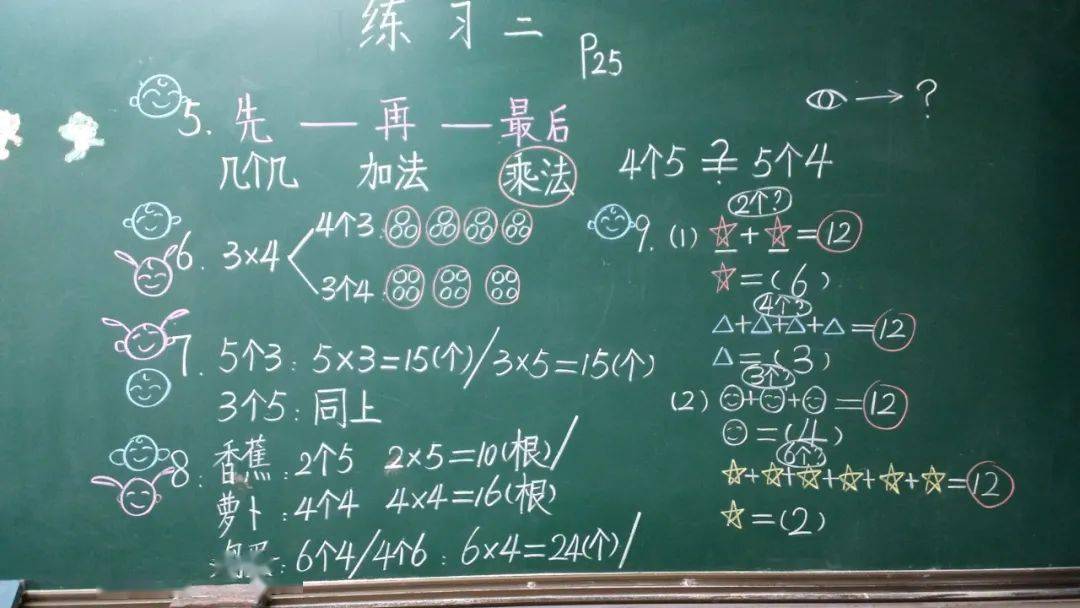 练习二
P25
5. 先 — 再 — 最后
几个几 加法 乘法
6. 3×4
4个3
3个4
7. 5个3：5×3=15(个)/3×5=15(个)
3个5：同上
8. 香蕉：2个5 2×5=10(根)/
萝卜：4个4 4×4=16(根)
：6个4/4个6：6×4=24(个)/
→?
4个5 ≟ 5个4
2个?
9. (1) ☆+☆=12
☆=(6)
4个?
△+△+△+△=12
△=(3)
3个?
(2) ☺+☺+☺=12
☺=(4)
6个?
☆+☆+☆+☆+☆+☆=12
☆=(2)